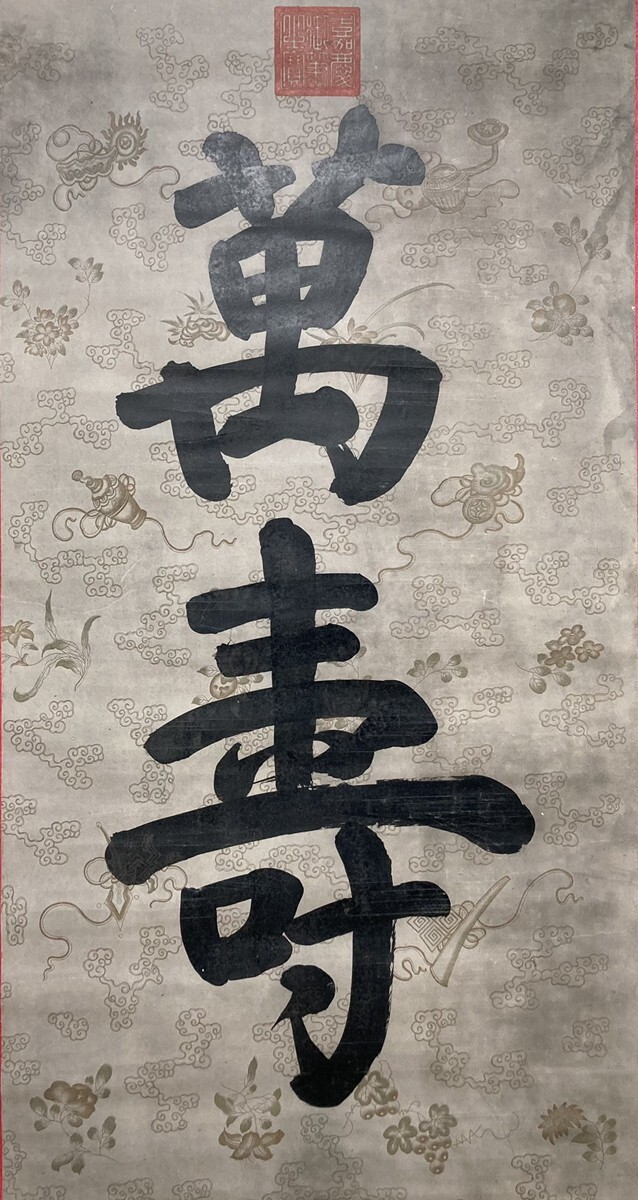 嘉慶
御筆
之寶
萬壽